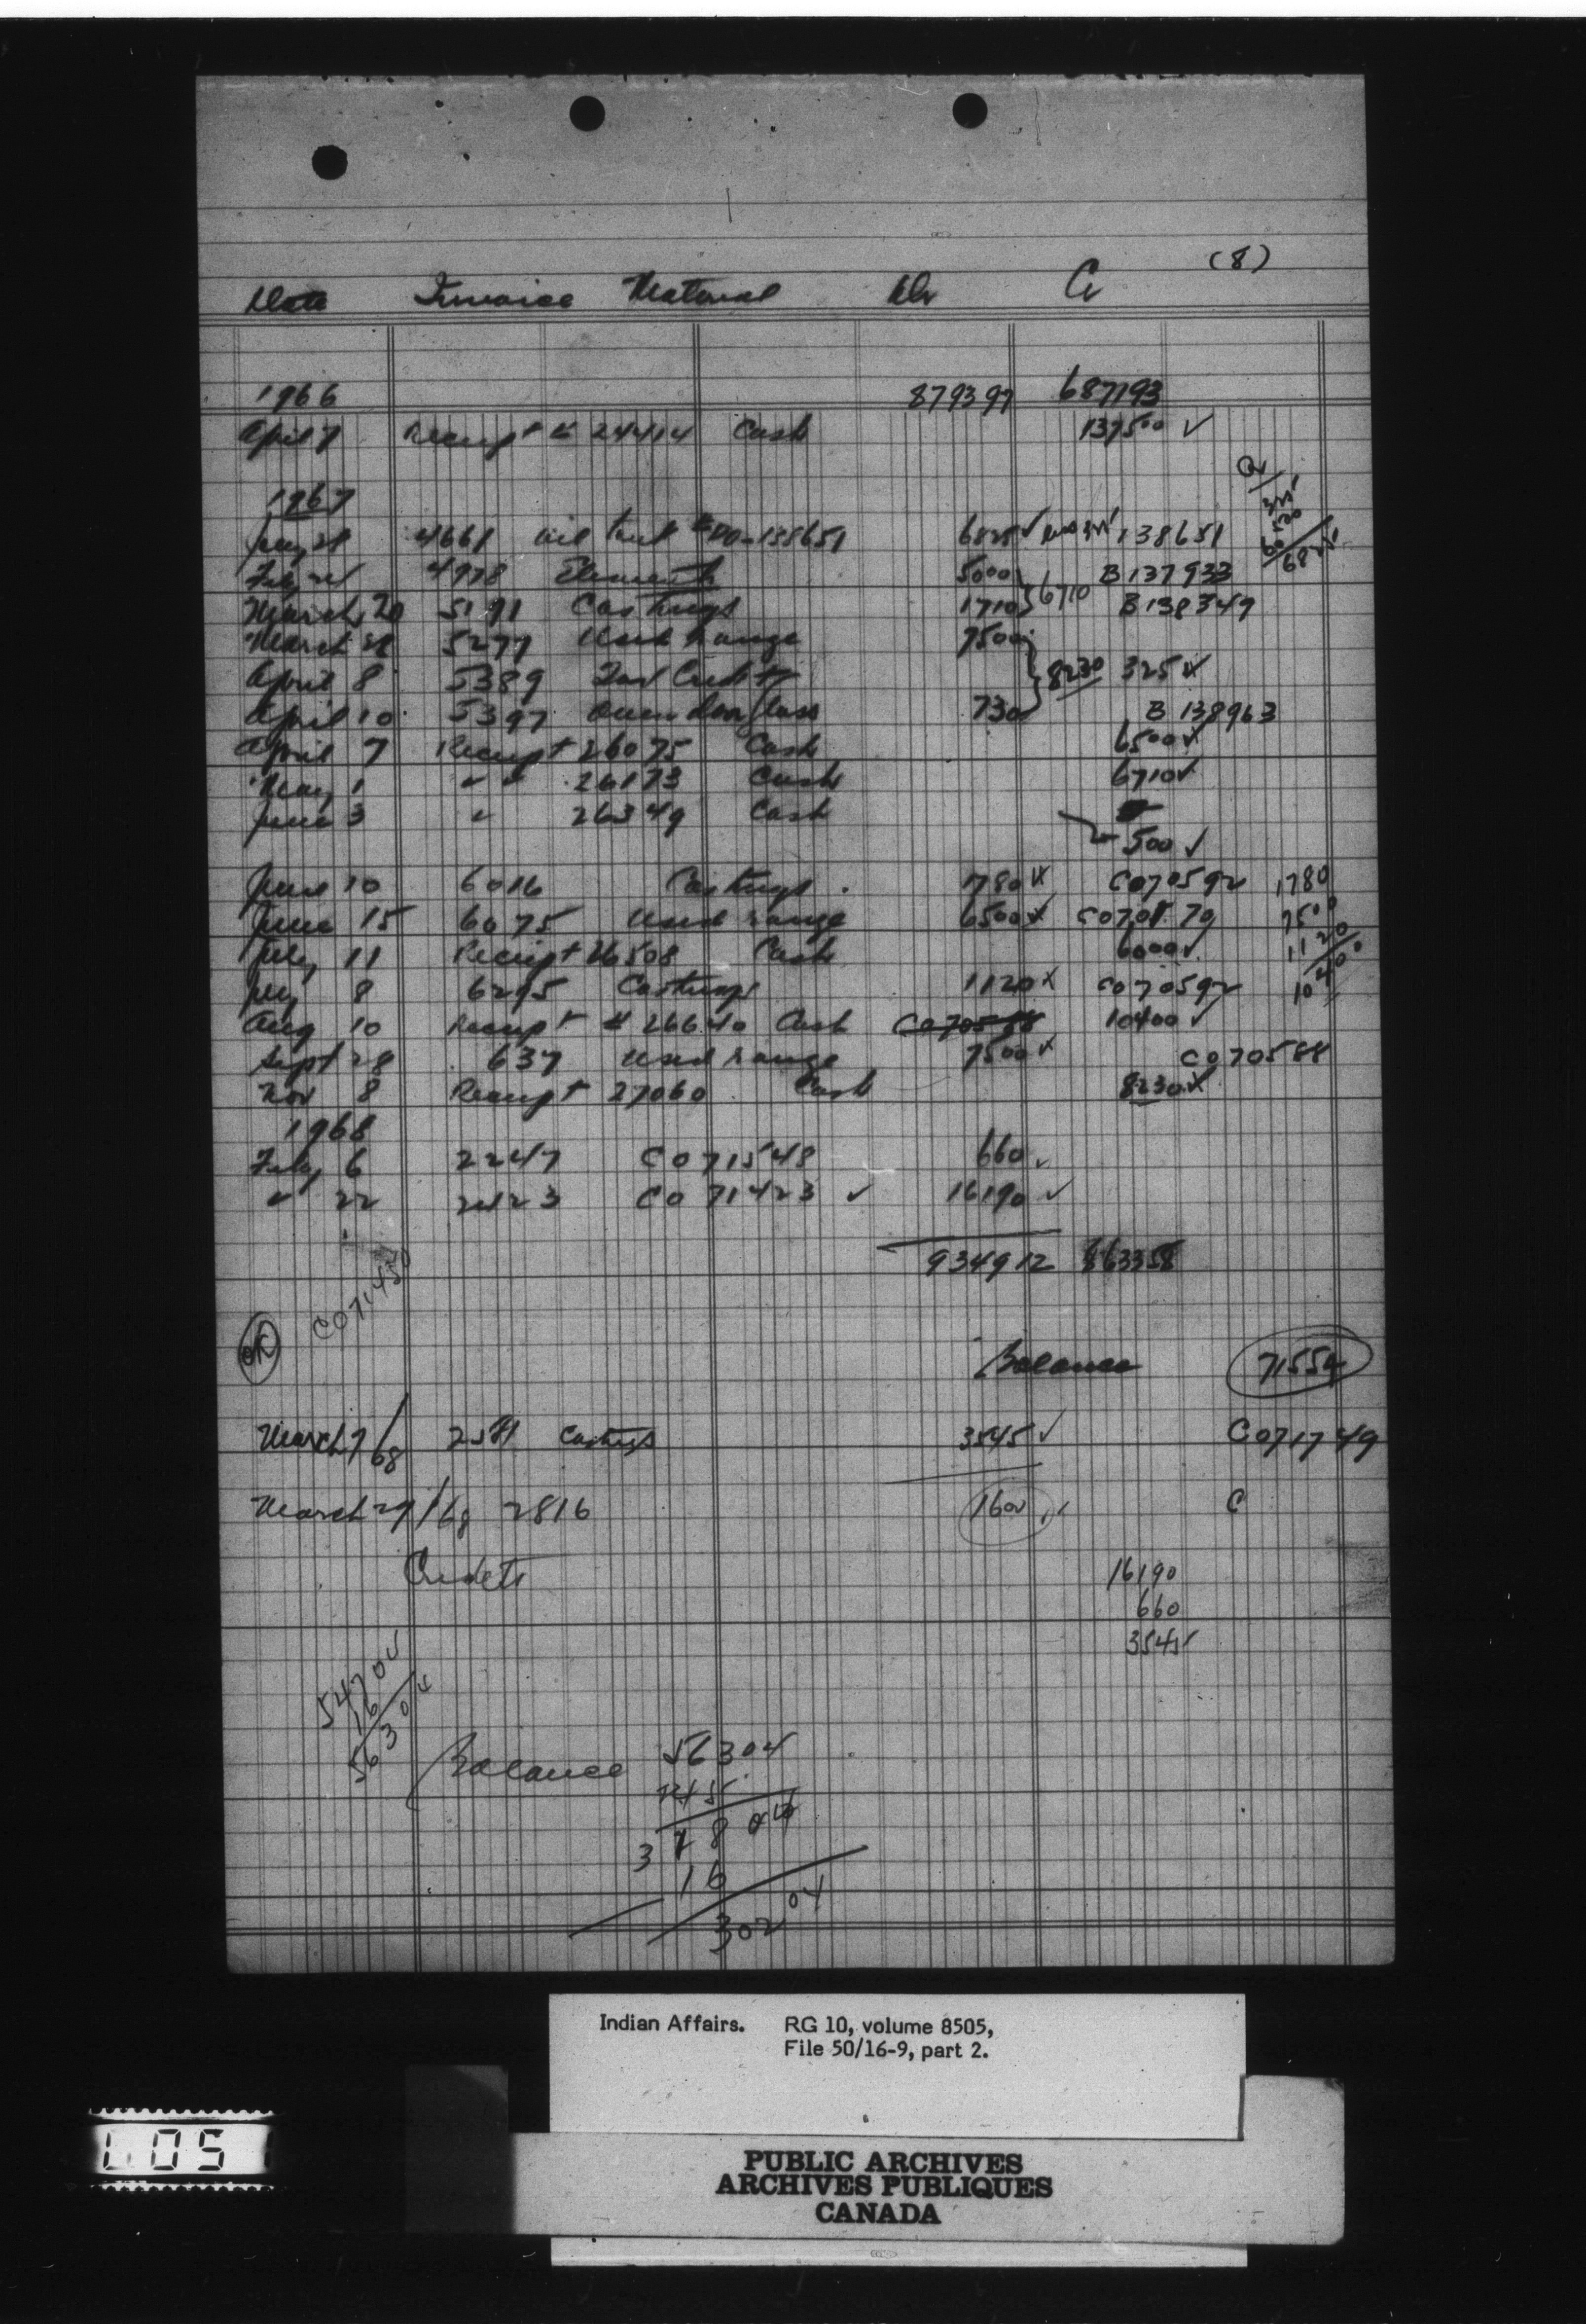 (8)
Date Invoice Material Dr Cr
1966 879397 687193
April 7 Receipt # 24414 Cash 137500 ✓
1967
4661 oil tank 6825 ✓ 138651
Cr 325 6500 6825
Feby 4978 Elements 5000 B 137933
March 20 5191 Castings 1710 } 6710 B 138349
March 5277 Used range 7500
April 8 5389 Tax Credit } 8230 325
April 10 5397 Oven door glass 730 B 138963
April 7 Receipt 26075 Cash 6500
May 1 " " 26173 Cash 6710 ✓
June 3 " 26349 Cash
500 ✓
June 10 6016 Castings 1780 C070592 1780
June 15 6075 Used range 6500 7500
July 11 Receipt 26508 Cash 6000 ✓ 1120
July 8 6295 Castings 1120 C070592 10400
Aug 10 Receipt # 26640 Cash C070588 10400 ✓
Sept 28 637 Used range 7500 C070588
Nov 8 Receipt 27060 Cash 8230
1968
Feby 6 2247 C071548 660 ✓
" 22 2423 C071423 ✓ 16190 ✓
934912 863358
C071430
OK
Balance 71554
March 7/68 2581 Castings 3545 ✓ C071749
March 29/68 2816 1600 C
Credits 16190
660
3545
54704
16
56304
Balance 56304
378 04
16
302 04
Indian Affairs. RG 10, volume 8505,
File 50/16-9, part 2.
PUBLIC ARCHIVES
ARCHIVES PUBLIQUES
CANADA